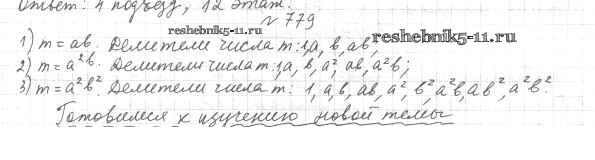 Ответ: 4 подъезд, 12 этаж.
№ 779
reshebnik5-11.ru
1) m = ab. Делители числа m: 1, a, b, ab;
reshebnik5-11.ru
2) m = a²b. Делители числа m: 1, a, b, a², ab, a²b;
3) m = a²b². Делители числа m: 1, a, b, ab, a², b², a²b, ab², a²b².
Готовимся к изучению новой темы